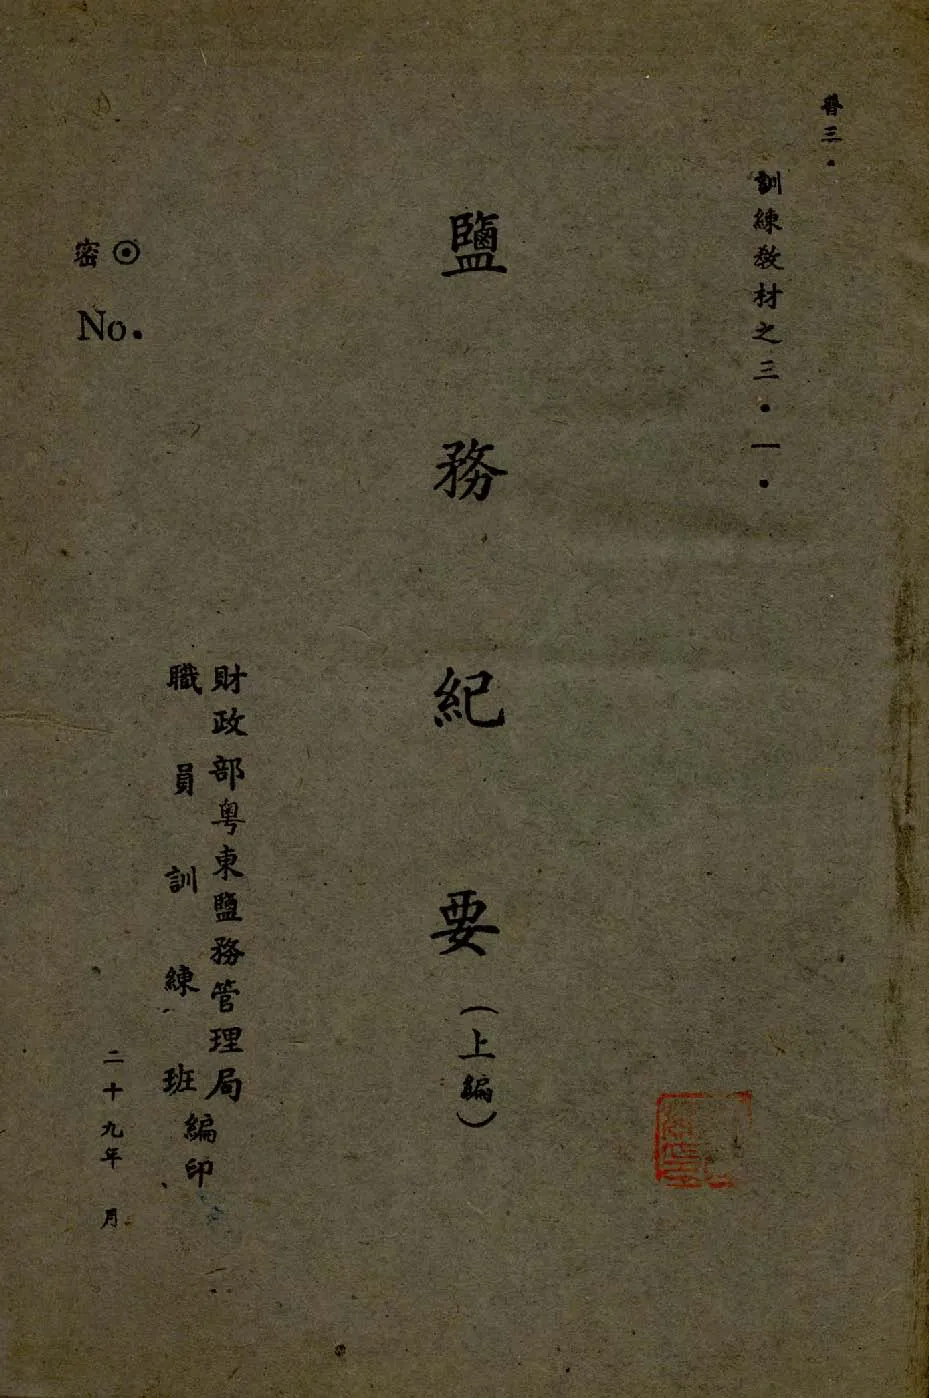 普三·
訓練教材之三·一·
鹽務紀要(上編)
財政部粤東鹽務管理局
職員訓練班
編印
二十九年 月
密⊙
No.